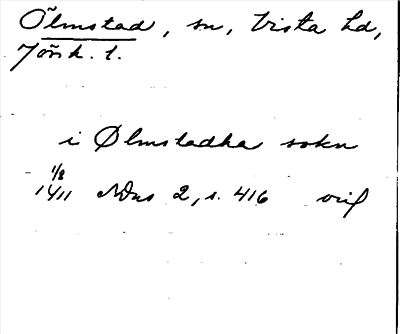 Ölmstad, sn, Vista hd,
Jönk. l.
i Ølmstadha sokn
1/8
1411 NDns 2, s. 416 orig